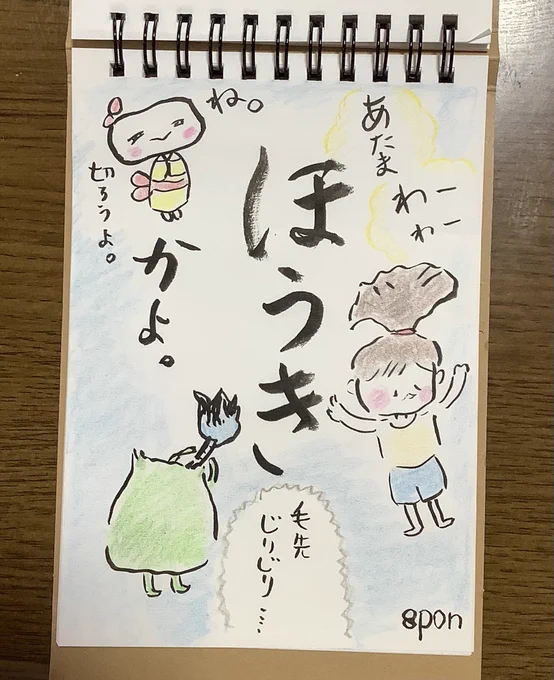 あたま
わーわー
ほうき
かよ。
ね。
切ろうよ。
毛先
じりじり…
8pon